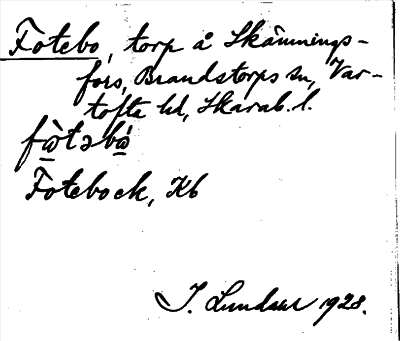 Fotebo, torp å Skämnings-
fors, Brandstorps sn, Var-
tofta hd, Skarab. l.
fò̱təbá̱
Fotebock, Kb
J. Lundahl 1928.